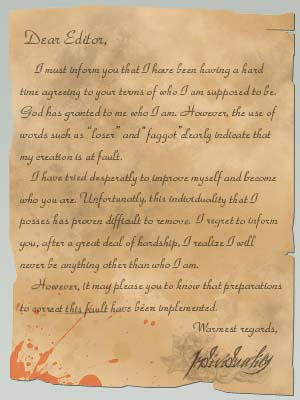 Dear Editor,
I must inform you that I have been having a hard
time agreeing to your terms of who I am supposed to be.
God has granted to me who I am. However, the use of
words such as "loser" and "faggot" clearly indicate that
my creation is at fault.
I have tried desperatly to improve myself and become
who you are. Unfortunatly, this individuality that I
posses has proven difftailt to remove. I regret to inform
you, after a great deal of hardship, I realize I will
never be anything other than who I am.
However, it may please you to know that preparations
to correct this fault have been implemented.
Warmest regards,
Individuality